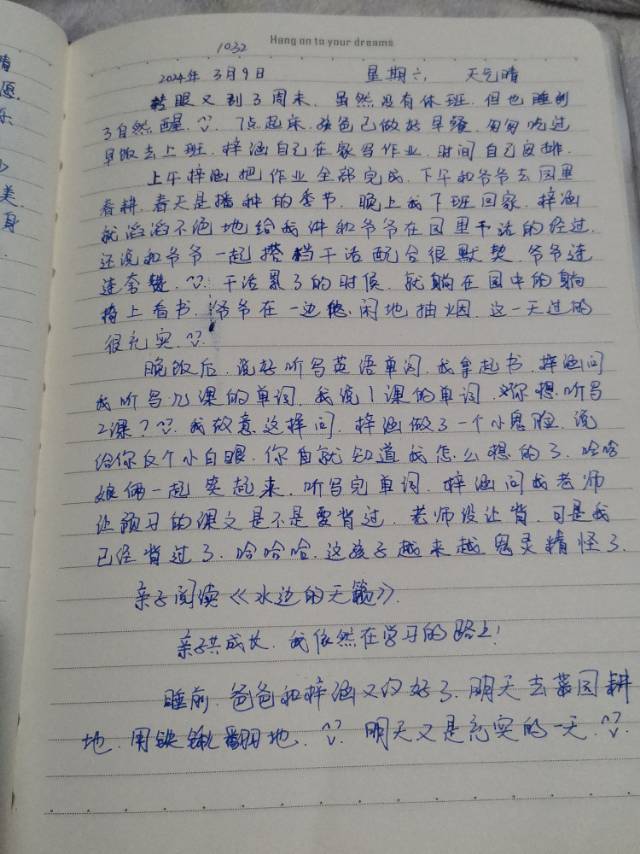 Hang on to your dreams
1032
2024年 3月9日 星期六 天气晴
转眼又到了周末. 虽然没有休班. 但也睡到
了自然醒. 7点起床. 爸爸已做好早餐. 匆匆吃过
早饭去上班. 梓涵自己在家写作业. 时间自己安排.
上午梓涵把作业全部完成. 下午和爷爷去园里
春耕. 春天是播种的季节. 晚上我下班回家. 梓涵
就滔滔不绝地给我讲和爷爷在园里干活的经过.
还说和爷爷一起搭档干活配合很默契. 爷爷连
连夸赞. 干活累了的时候. 就躺在园中的躺
椅上看书. 爷爷在一边悠闲地抽烟. 这一天过的
很充实.
晚饭后. 说好听写英语单词. 我拿起书. 梓涵问
我听写几课的单词. 我说1课的单词. 你想听写
2课? 我故意这样问. 梓涵做了一个小鬼脸. 说
给你反个小白眼. 你自就知道我怎么想的了. 哈哈
娘俩一起笑起来. 听写完单词. 梓涵问我老师
让预习的课文是不是要背过. 老师没让背. 可是我
已经背过了. 哈哈哈. 这孩子越来越鬼灵精怪了.
亲子阅读《水边的天籁》.
亲子共成长. 我依然在学习的路上!
睡前. 爸爸和梓涵又约好了. 明天去菜园耕
地. 用铁锹翻地. 明天又是充实的一天.